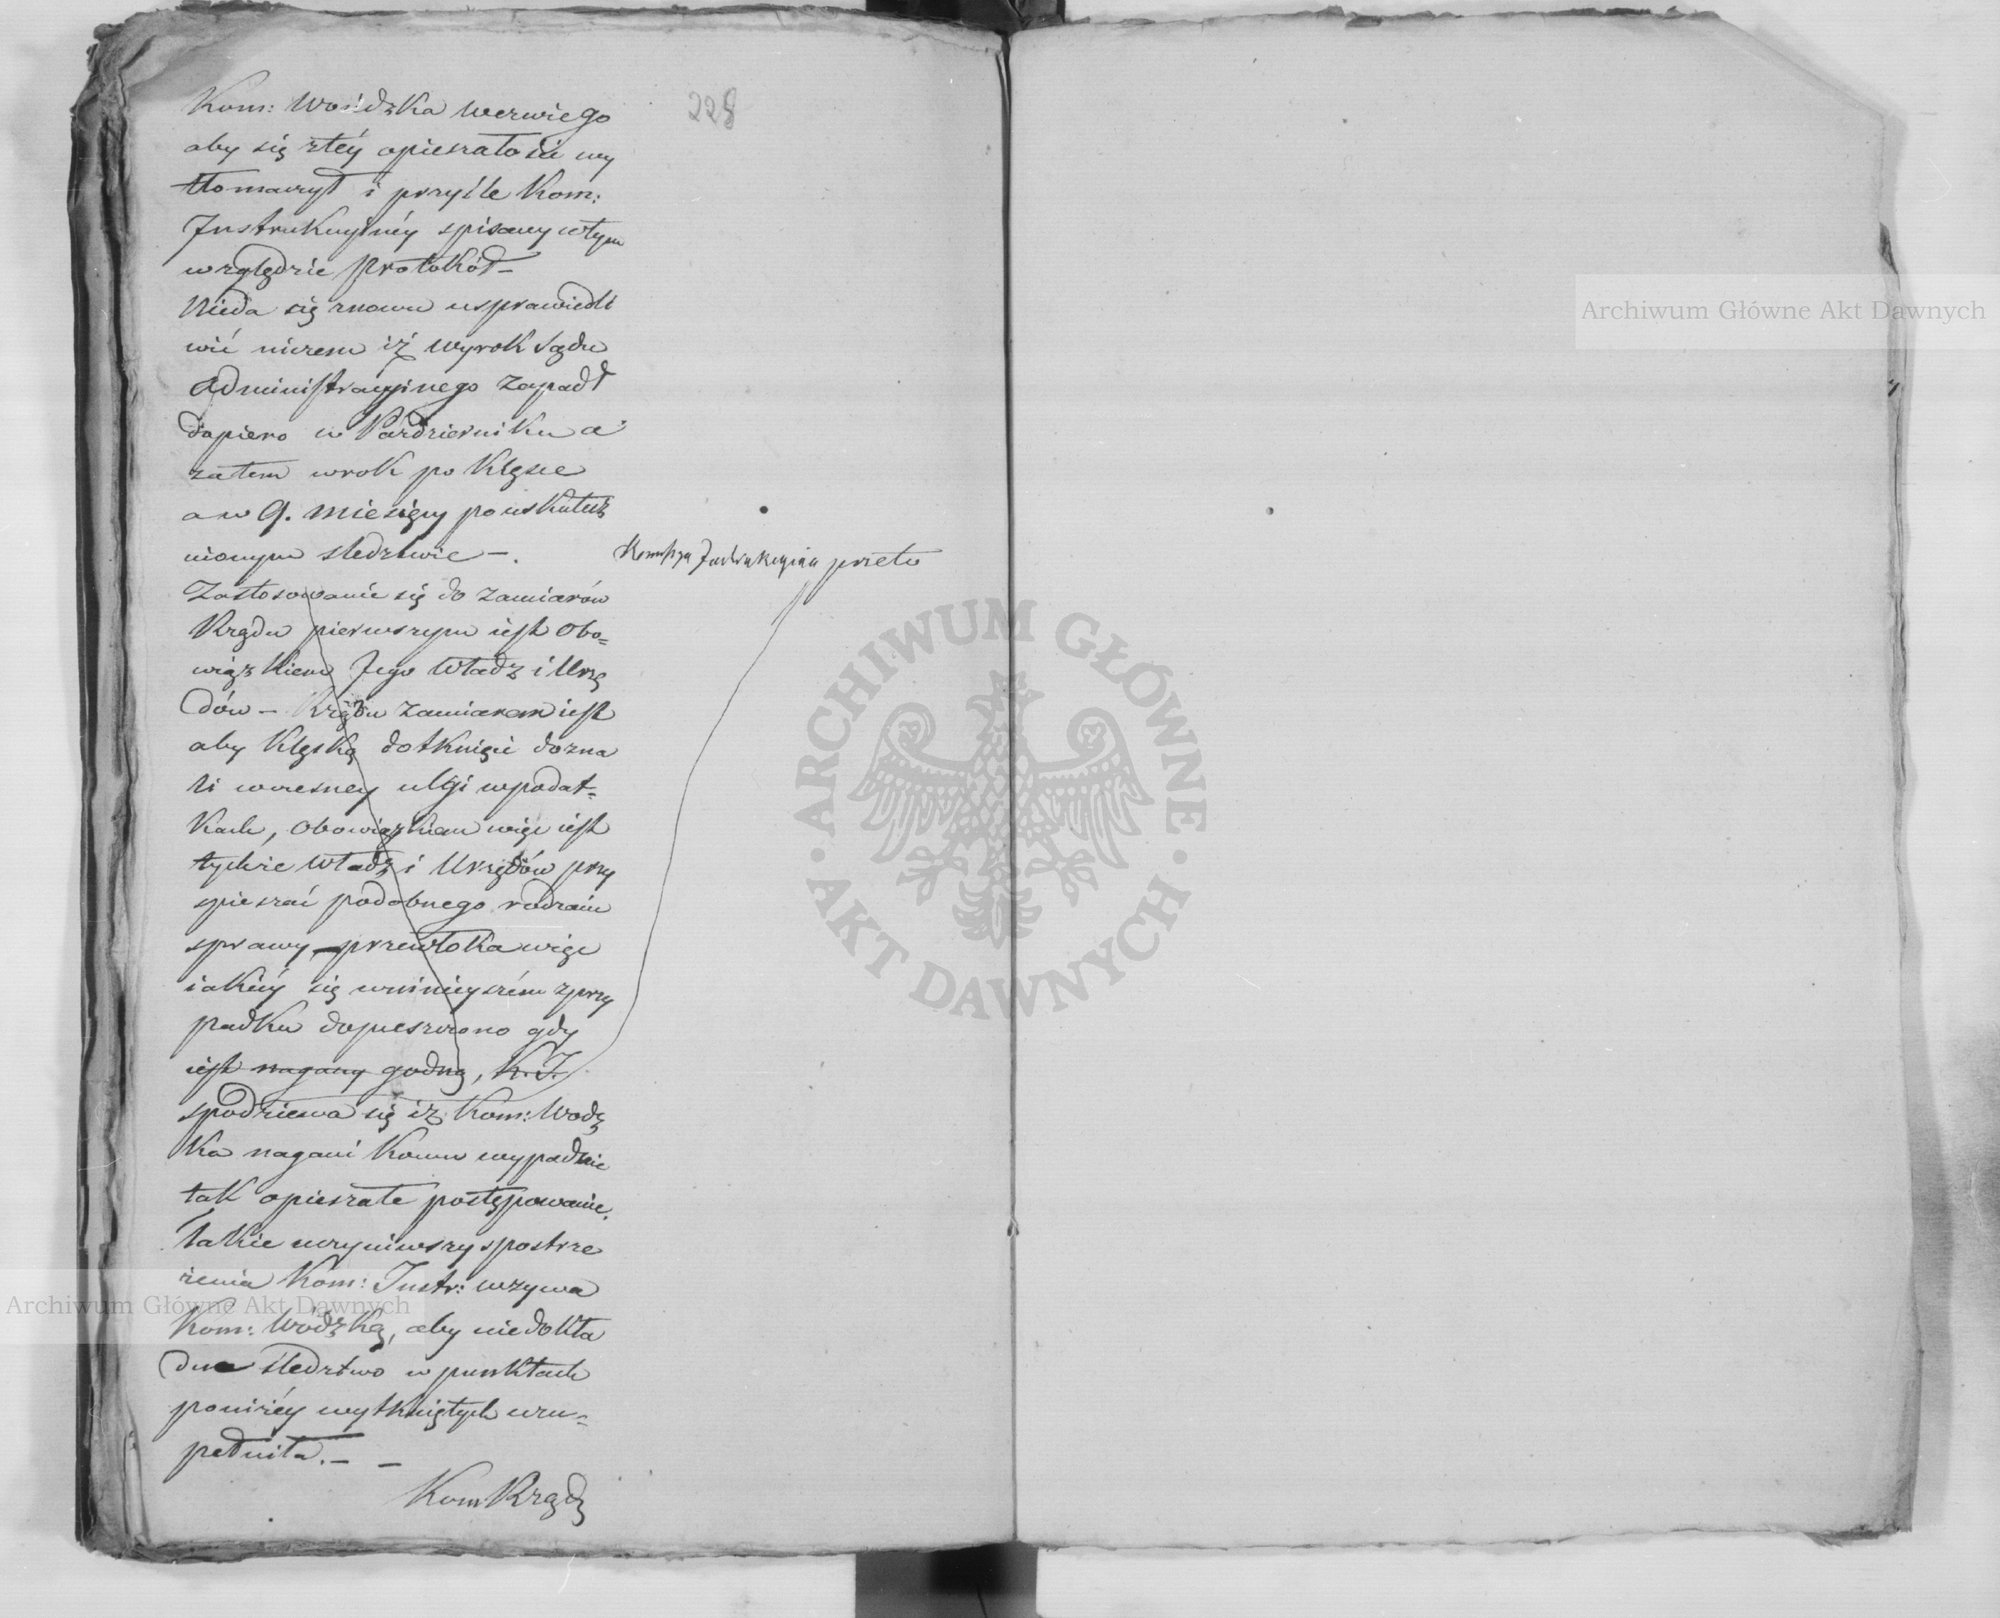 228
Kom: Wojdzka wezwie go
aby się ztéy opieszałości wy
tłomaczył i prześle Kom:
Instrukcyinéy spisany wtym
względzie Protokół –
Nieda się znowu usprawiedli
wić niczem iż wyrok Sądu
Administracyinego zapadł
dopiero w Pazdzierniku a
zatem w rok po klęsce
a w 9. miesięcy po uskutecz
nionym sledztwie –.
Kommissya Instrukcyina przeto
Zastosowanie się do zamiarów
Rządu pierwszym iest obo=
wiązkiem Jego Władz i Urzę
dów – Rządu zamiarem iest
aby klęską dotknięci dozna
li wczesney ulgi w podat=
kach, obowiązkiem więc iest
tychże Władz i Urzędów przy
spieszać podobnego rodzaiu
sprawy, przewłoka więc
iakiéy się w ninieyszém przy
padku dopuszczono gdy
iest nagany godną, K. J.
spodziewa się iż Kom: Wodz
ka nagani komu wypadnie
tak opieszałe postępowanie.
Takie uczyniwszy spostrze
żenia Kom: Instr: wzywa
Kom: Wódzką, aby niedokła
dne śledztwo w punktach
poniżéy wytkniętych uzu=
pełniła. – –
Kom Rządz
Archiwum Główne Akt Dawnych
ARCHIWUM GŁÓWNE AKT DAWNYCH
Archiwum Główne Akt Dawnych